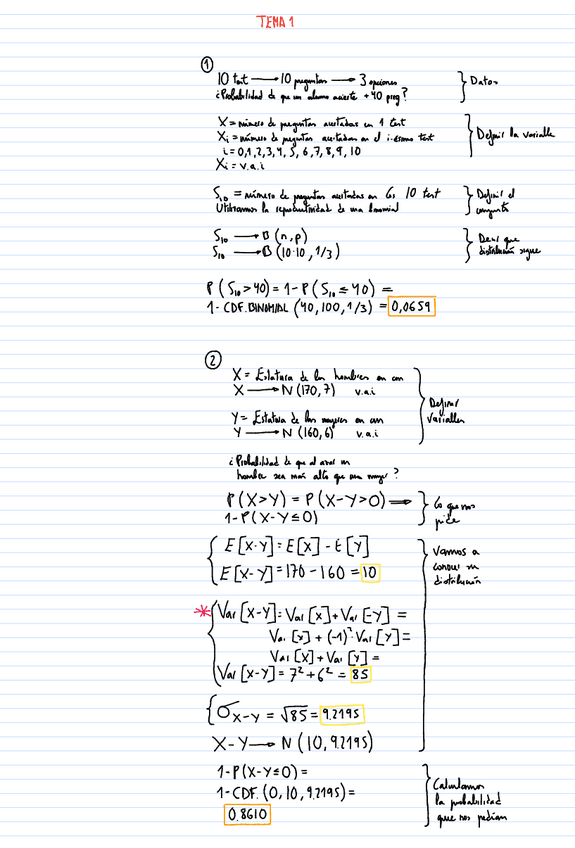 TEMA 1
①
10 test → 10 preguntas → 3 opciones } Datos
¿Probabilidad de que un alumno acierte +40 preg?
X = número de preguntas acertadas en 1 test
Xi = número de preguntas acertadas en el i-ésimo test } Definir la variable
i = 0,1,2,3,4,5,6,7,8,9,10
Xi = v.a.i
S10 = número de preguntas acertadas en 10 test } Definir el conjunto
Utilizamos la reproductividad de una binomial
S10 → B (n,p) } Decir que distribución sigue
S10 → B (10·10, 1/3)
P (S10 > 40) = 1 - P (S10 ≤ 40) =
1 - CDF.BINOMIAL (40, 100, 1/3) = 0,0659
②
X = Estatura de los hombres en cm
X → N (170, 7) v.a.i
} Definir variables
Y = Estatura de las mujeres en cm
Y → N (160, 6) v.a.i
¿Probabilidad de que al azar un
hombre sea más alto que una mujer?
P (X>Y) = P (X-Y>0) ⟹ } Lo que nos pide
1-P(X-Y≤0)
E[X-Y] = E[X] - E[Y] } Vamos a conocer su distribución
E[X-Y] = 170 - 160 = 10
* Var [X-Y] = Var [X] + Var [-Y] =
Var [X] + (-1)² Var [Y] =
Var [X] + Var [Y] =
Var [X-Y] = 7² + 6² = 85
σX-Y = √85 = 9.2195
X-Y → N (10, 9.2195)
1-P(X-Y≤0) =
1-CDF. (0, 10, 9.2195) = } Calculamos la probabilidad que nos pedían
0.8610